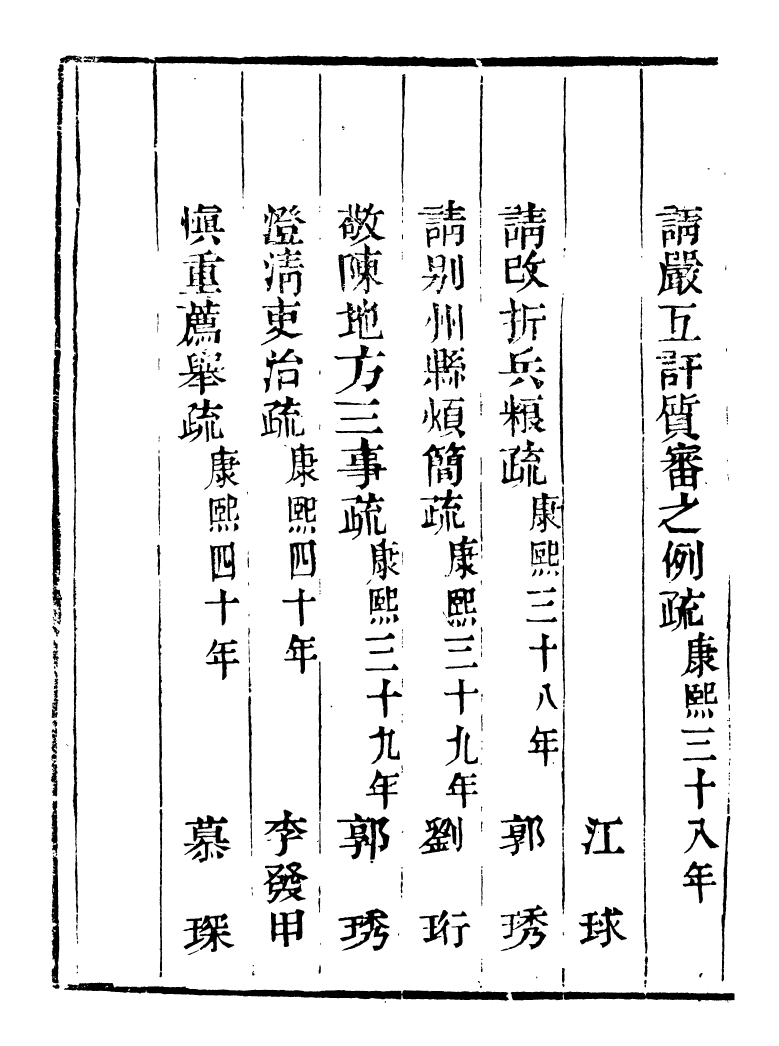 請嚴互訐質審之例疏康熙三十八年
江球
請改折兵粮疏康熙三十八年 郭琇
請别州縣煩簡疏康熙三十九年 劉珩
敬陳地方三事疏康熙三十九年 郭琇
澄清吏治疏康熙四十年 李發甲
慎重薦舉疏康熙四十年 慕琛